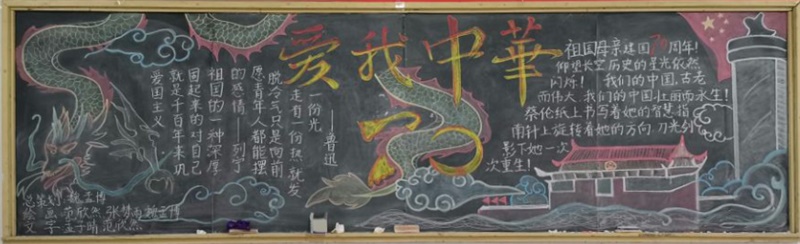 爱我中華
70
爱国主义
就是千百年来巩
固起来的对自己
祖国的一种深厚
的感情——列宁
愿青年人都能摆
脱冷气只是向前
走有一份热就发
一份光
——鲁迅
祖国母亲建国70周年!
仰望长空历史的星光依然
闪烁! 我们的中国,古老
而伟大 我们的中国,壮丽而永生!
蔡伦纸上书写着她的智慧指
南针上旋转着她的方向 刀光剑
影下她一次
次重生!
总策划
绘 画 欣然 张梦雨
文 字 孟子晴 范欣然